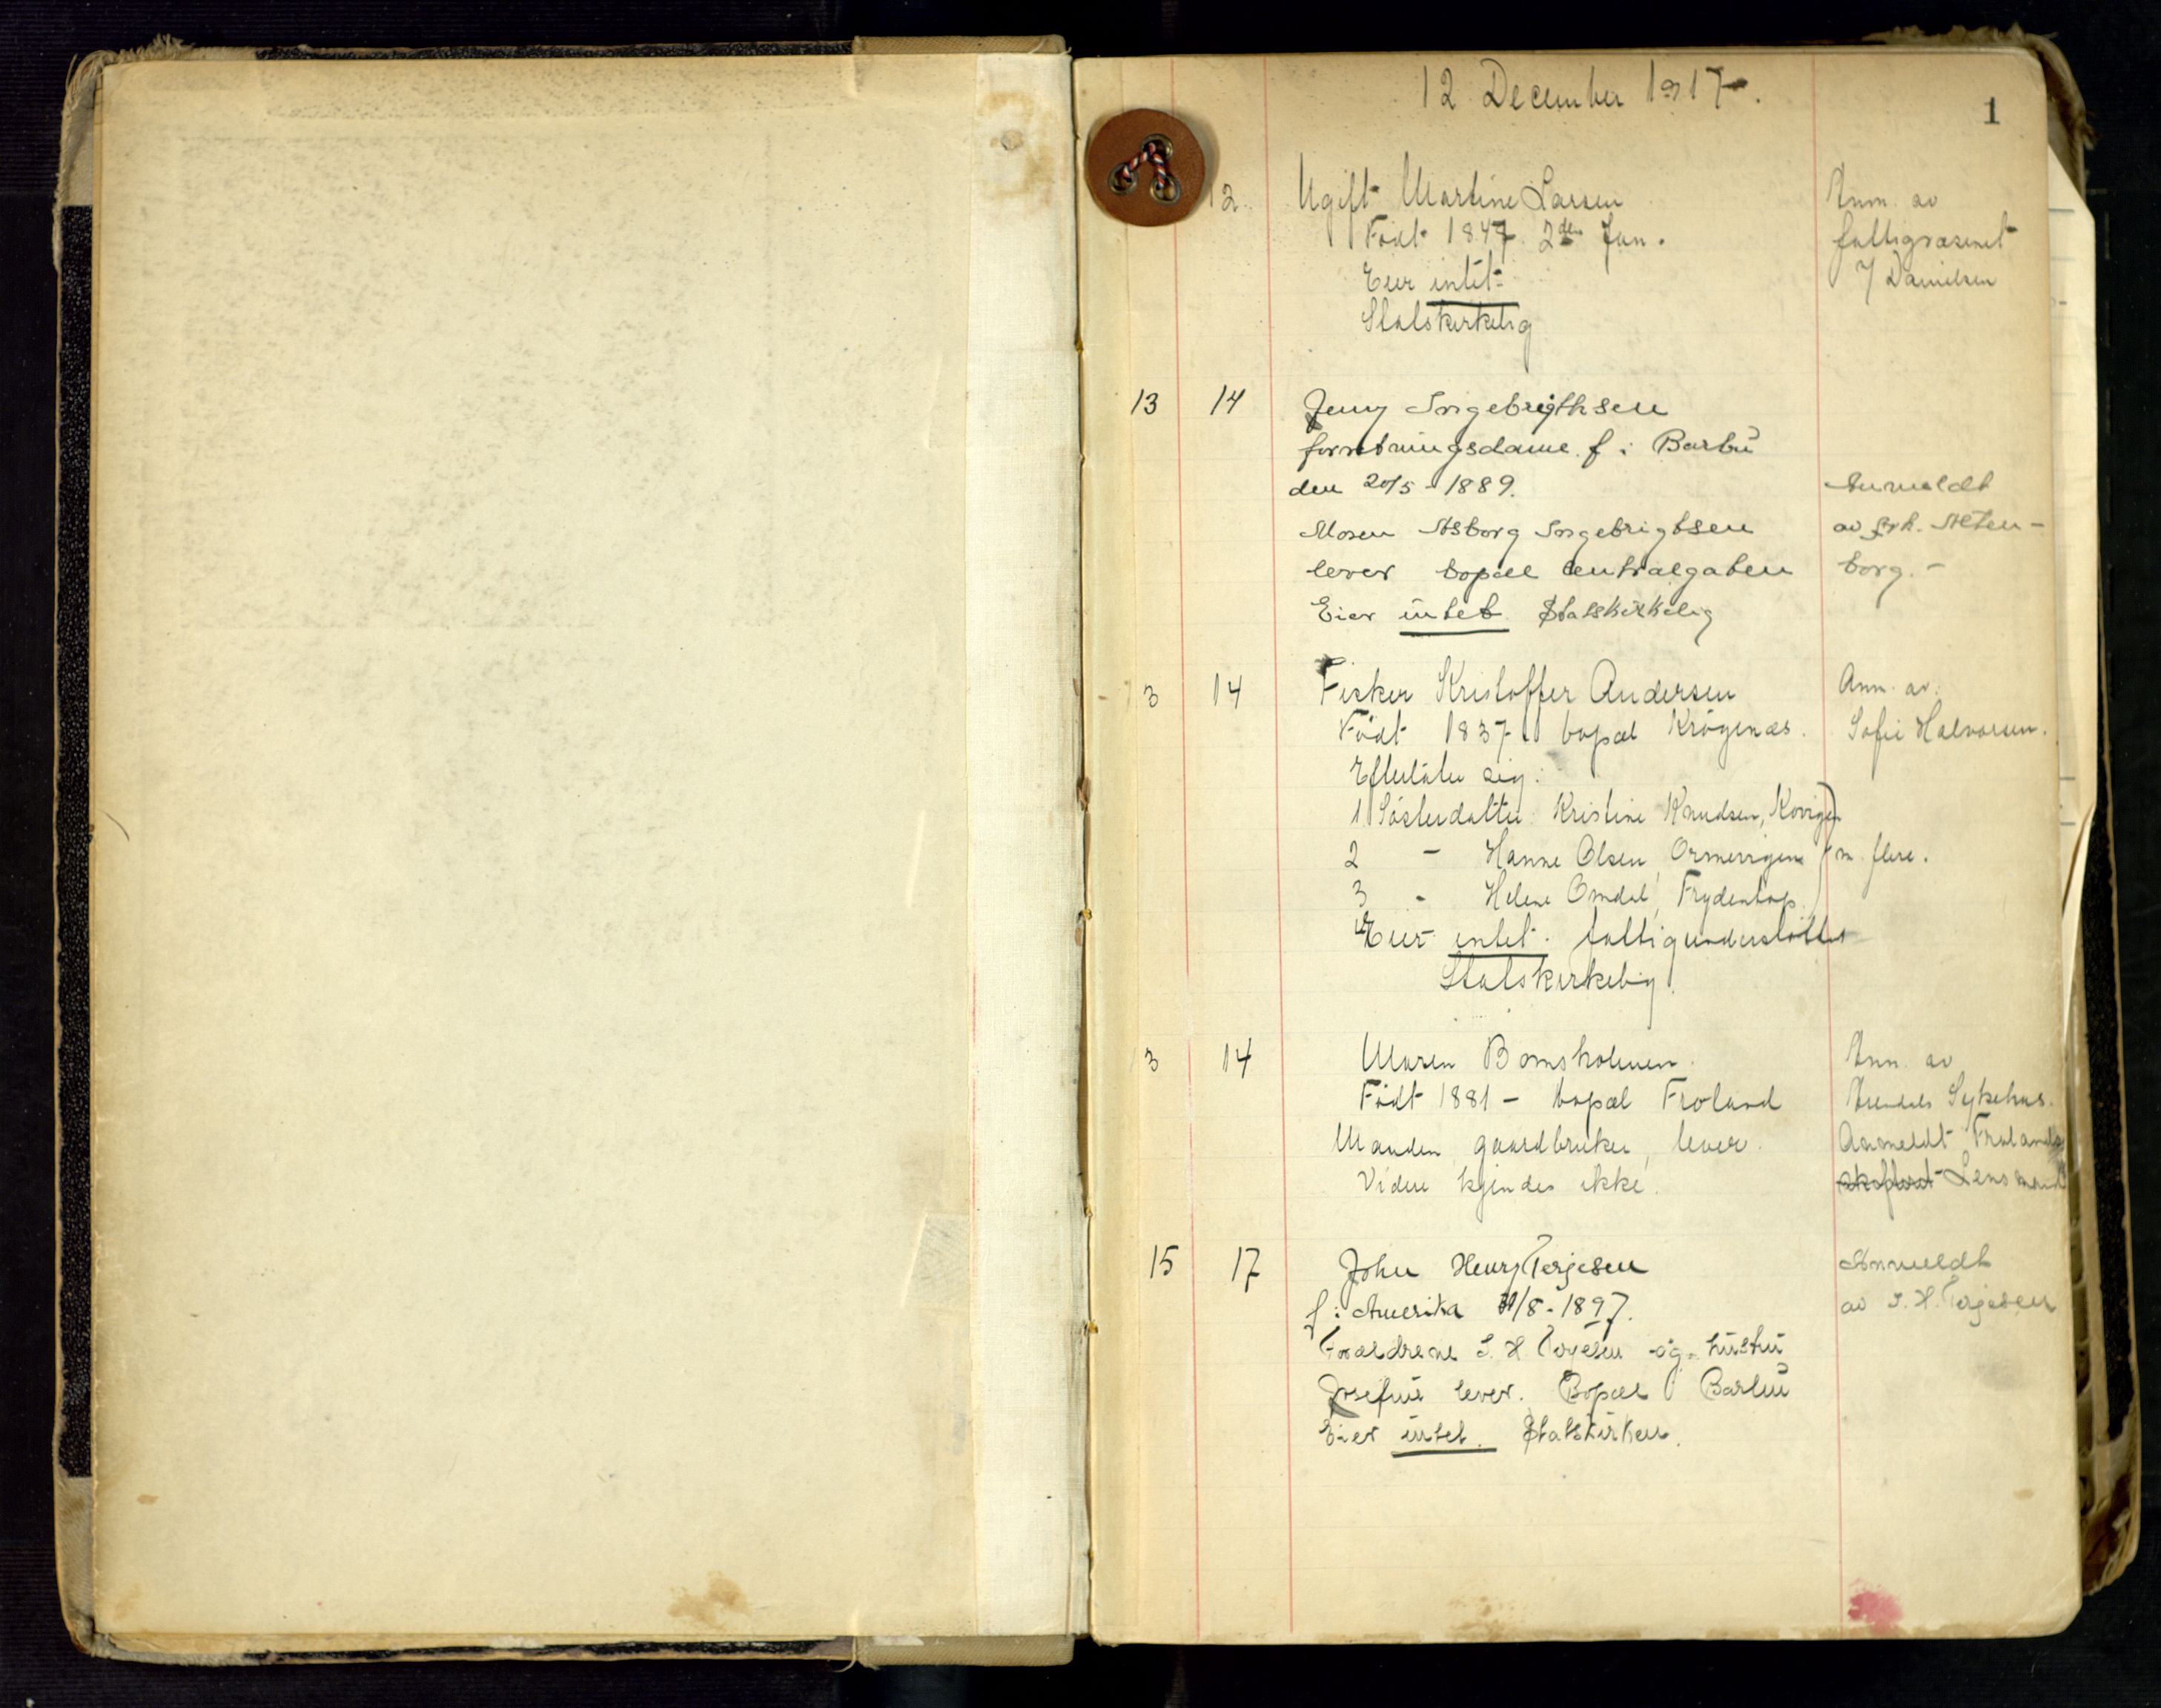 12 December 1917.
1
12. Ugift Martine Larsen
Født 1847. 2den Jan.
Eier intet
Statskirkelig
Anm. av
fattigvæsenet
v/ Danielsen
13 14 Jenny Ingebrigthsen
forretningsdame f i Barbu
den 20/5 - 1889.
Moren Asborg Ingebrigtsen
lever bopæl Centralgaten
Eier intet Statskirkelig
Anmeldt
av frk. Alten-
borg. -
13 14 Fisker Kristoffer Andersen
Født 1837 bopæl Krøgenæs.
Efterlater sig:
1 Søsterdatter Kristine Knudsen,
2 - Hanne Olsen, m. flere.
3 - Helene Omdal,
Eier intet. fattigunderstøttet
Statskirkelig.
Anm. av.
Sofie Halvorsen.
13 14 Maren Bomsholmen.
Født 1881 - bopæl Froland
Manden, gaardbruker, lever.
Videre kjendes ikke.
Anm. av
Arendals Sykehus.
Anmeldt Frolands
Lensmand
15 17 John Henry Terjesen
f i Amerika /8 - 1897.
Forældrene I. H. Terjesen og hustru
Josefine lever. Bopæl Barbu
Eier intet. Statskirken.
Anmeldt
av I. H. Terjesen